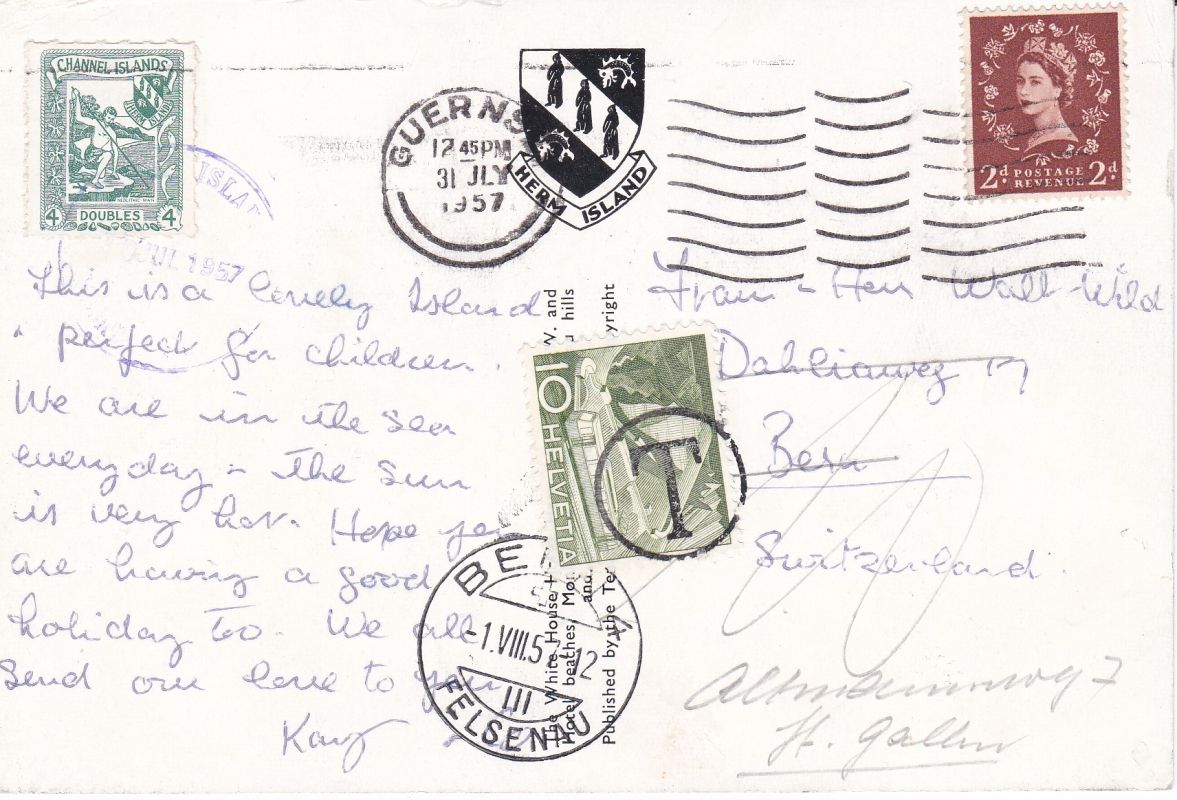 CHANNEL ISLANDS
HERM ISLAND
NEOLITHIC MAN
4 DOUBLES 4
JUL 1957
GUERNS
12 45 PM
31 JLY
1957
HERM ISLAND
2d POSTAGE REVENUE 2d
This is a lovely Island
perfect for children.
We are in the sea
everyday - the sun
is very hot. Hope you
are having a good
holiday too. We all
send our love to you
Kay
W. and
hills
yright
The White House H
Hotel beaches, Mo
and
Published by the Te
10 HELVETIA
T
BE
-1.VIII.57-12
III
FELSENAU
Herr Walt-Wild
Dahliaweg 17
Bern
Switzerland.
7
St. Gallen